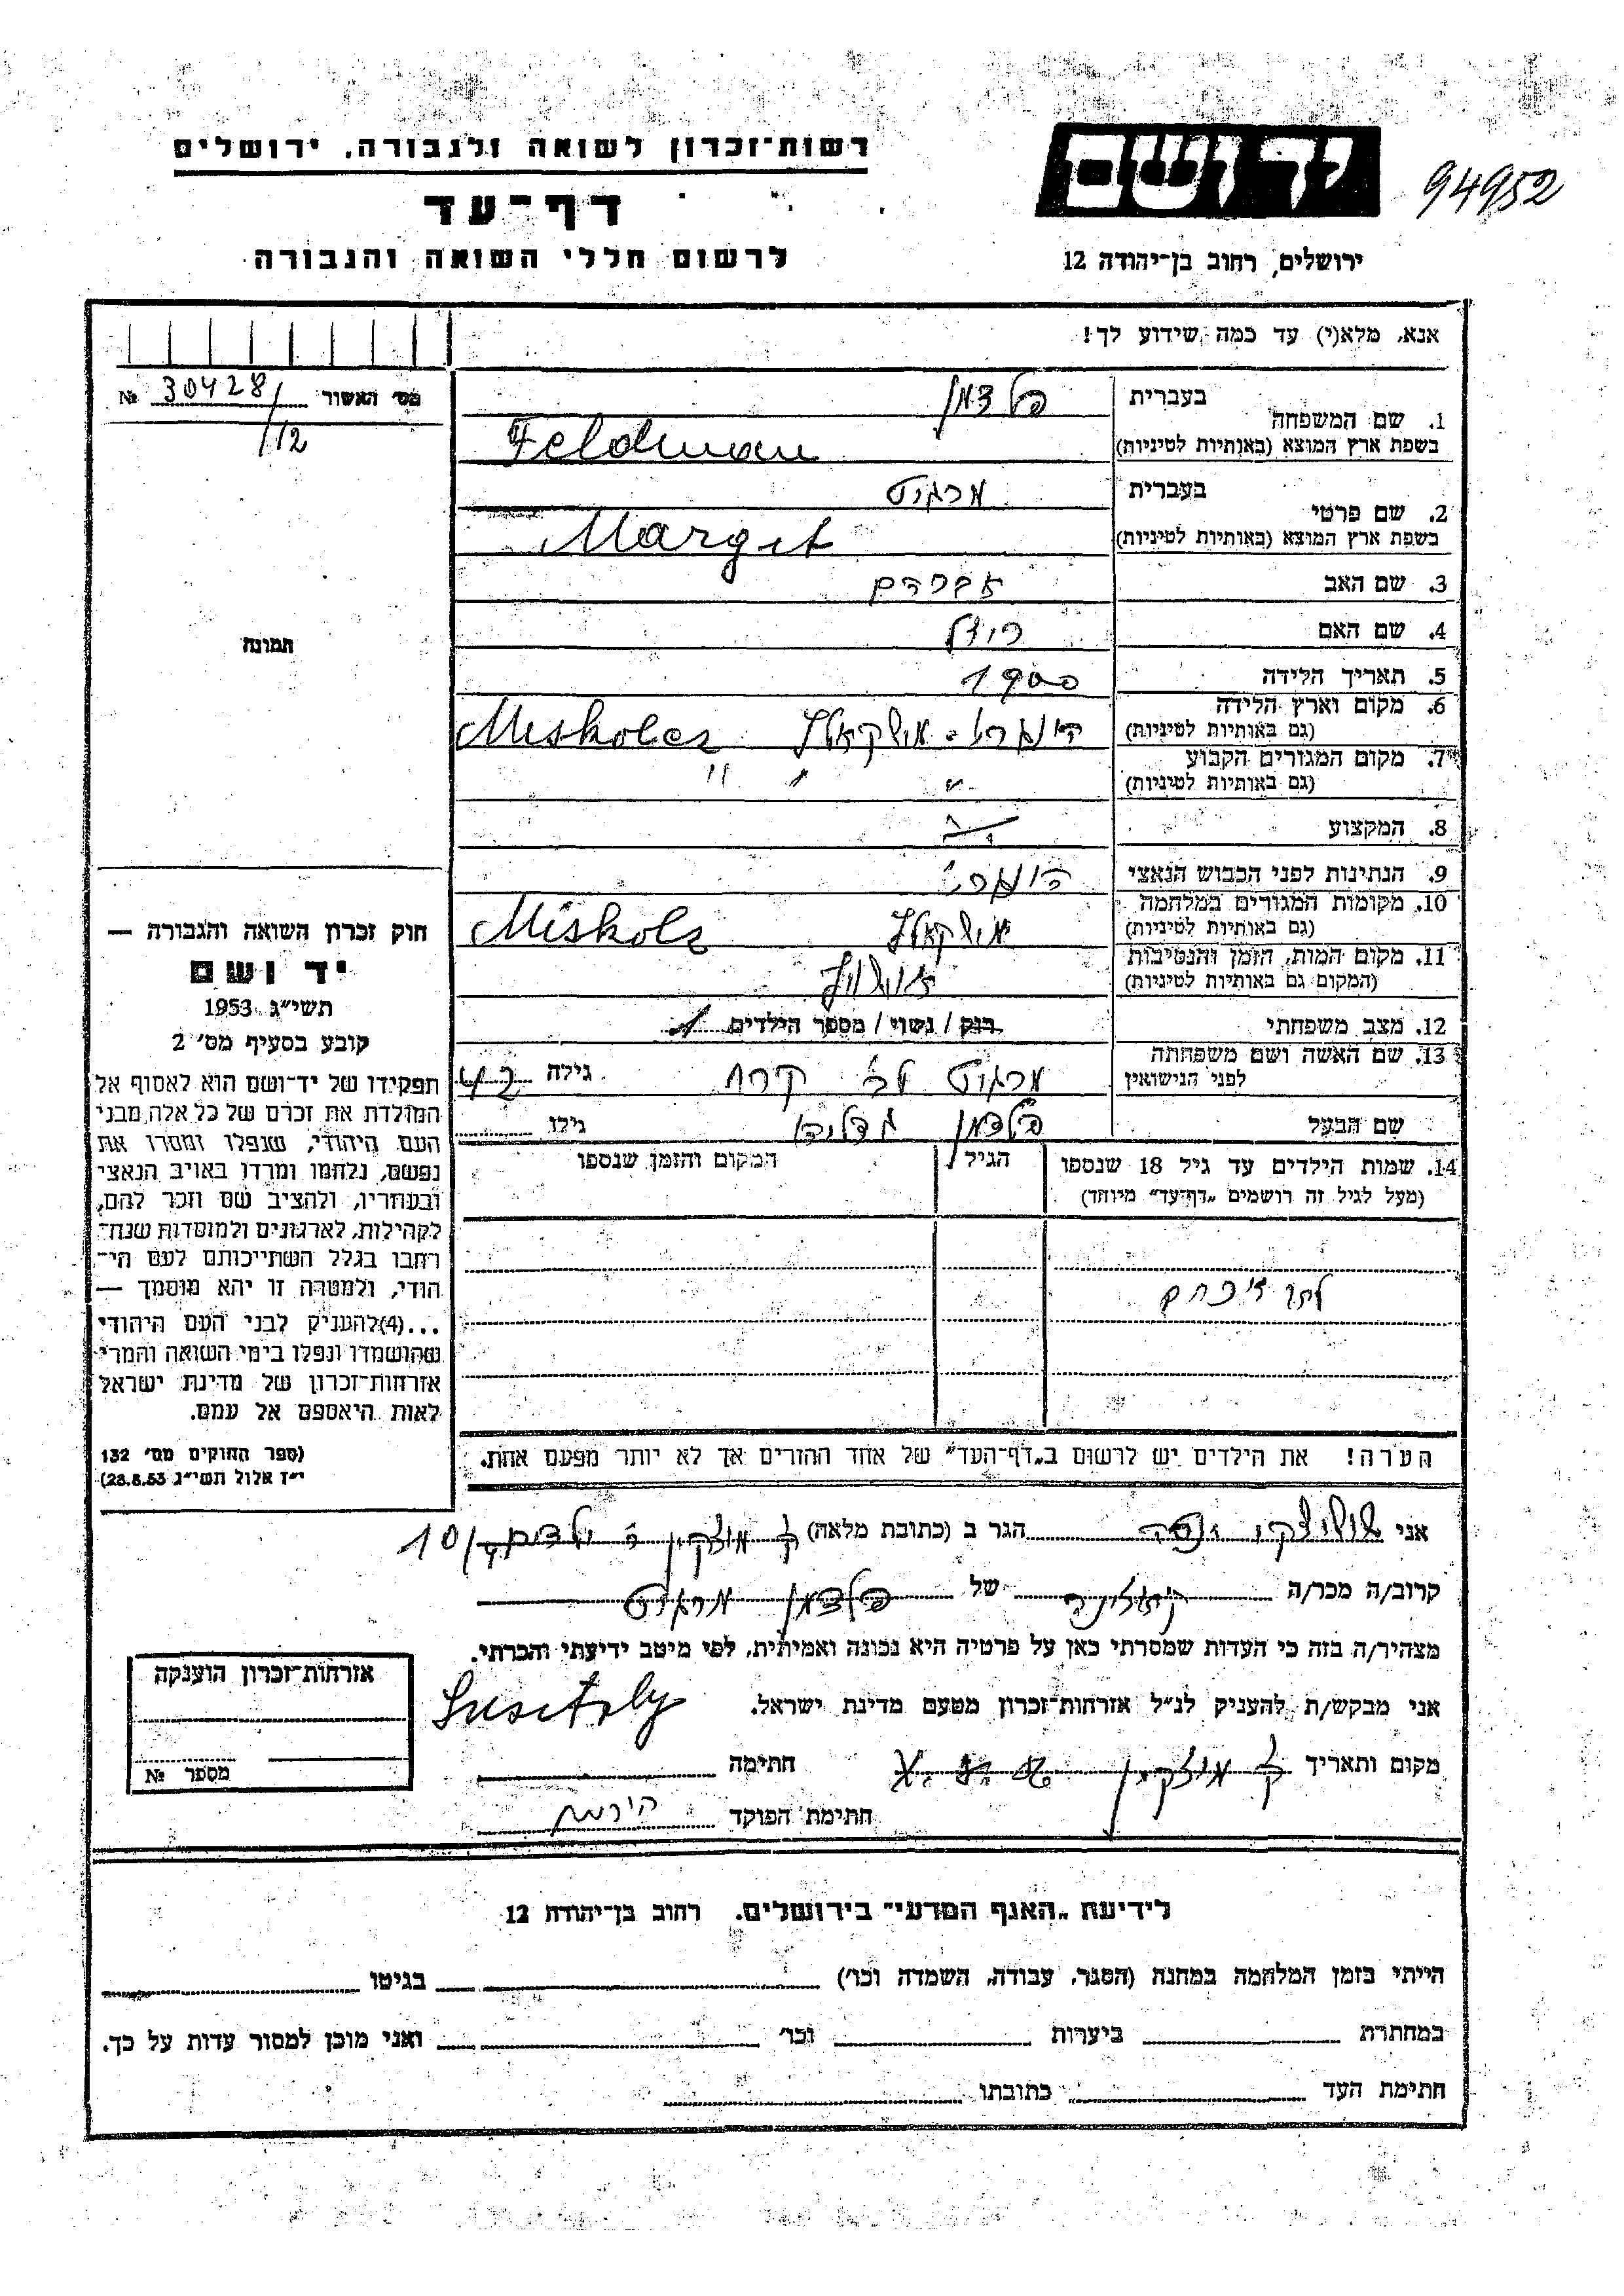 רשות־זכרון לשואה ולגבורה, ירושלים
דף־עד
לרשום חללי השואה והגבורה
יד ושם
94952
ירושלים, רחוב בן־יהודה 12
אנא, מלא(י) עד כמה שידוע לך!
מס׳ האשור 30428/ №
/12
תמונה
1. שם המשפחה
בעברית פלדמן
בשפת ארץ המוצא (באותיות לטיניות) Feldman
2. שם פרטי
בעברית מרגיט
בשפת ארץ המוצא (באותיות לטיניות) Margit
3. שם האב אברהם
4. שם האם
5. תאריך הלידה 1900
6. מקום וארץ הלידה
(גם באותיות לטיניות) מישקולץ Miskolcz
7. מקום המגורים הקבוע
(גם באותיות לטיניות) " " "
8. המקצוע
9. הנתינות לפני הכבוש הנאצי
10. מקומות המגורים במלחמה
(גם באותיות לטיניות) מישקולץ Miskolz
11. מקום המות, הזמן והנסיבות
(המקום גם באותיות לטיניות) אושויץ
12. מצב משפחתי רוק / נשוי / מספר הילדים 1
13. שם האשה ושם משפחתה
לפני הנישואין מרגיט גילה
שם הבעל פלדמן גילו
14. שמות הילדים עד גיל 18 שנספו
(מעל לגיל זה רושמים „דף־עד״ מיוחד)
הגיל
המקום והזמן שנספו
הערה! את הילדים יש לרשום ב„דף־העד״ של אחד ההורים אך לא יותר מפעם אחת.
חוק זכרון השואה והגבורה —
יד ושם
תשי״ג 1953
קובע בסעיף מס׳ 2
תפקידו של יד־ושם הוא לאסוף אל
המולדת את זכרם של כל אלה מבני
העם היהודי, שנפלו ומסרו את
נפשם, נלחמו ומרדו באויב הנאצי
ובעוזריו, ולהציב שם וזכר להם,
לקהילות, לארגונים ולמוסדות שנח־
רבו בגלל השתייכותם לעם הי־
הודי, ולמטרה זו יהא מוסמך —
...(4)להעניק לבני העם היהודי
שהושמדו ונפלו בימי השואה והמרי
אזרחות־זכרון של מדינת ישראל
לאות היאספם אל עמם.
(ספר החוקים מס׳ 132
י״ז אלול תשי״ג 28.8.53)
אני הגר ב (כתובת מלאה) ק מוצקין 10/
קרוב/ה מכר/ה של פלדמן מרגיט
מצהיר/ה בזה כי העדות שמסרתי כאן על פרטיה היא נכונה ואמיתית, לפי מיטב ידיעתי והכרתי.
אני מבקש/ת להעניק לנ״ל אזרחות־זכרון מטעם מדינת ישראל.
מקום ותאריך ק מוצקין חתימה
חתימת הפוקד
אזרחות־זכרון הוענקה
מספר №
לידיעת „האגף המדעי״ בירושלים, רחוב בן־יהודה 12
הייתי בזמן המלחמה במחנה (הסגר, עבודה, השמדה וכו׳) בגיטו
במחתרת ביערות וכו׳ ואני מוכן למסור עדות על כך.
חתימת העד כתובתו